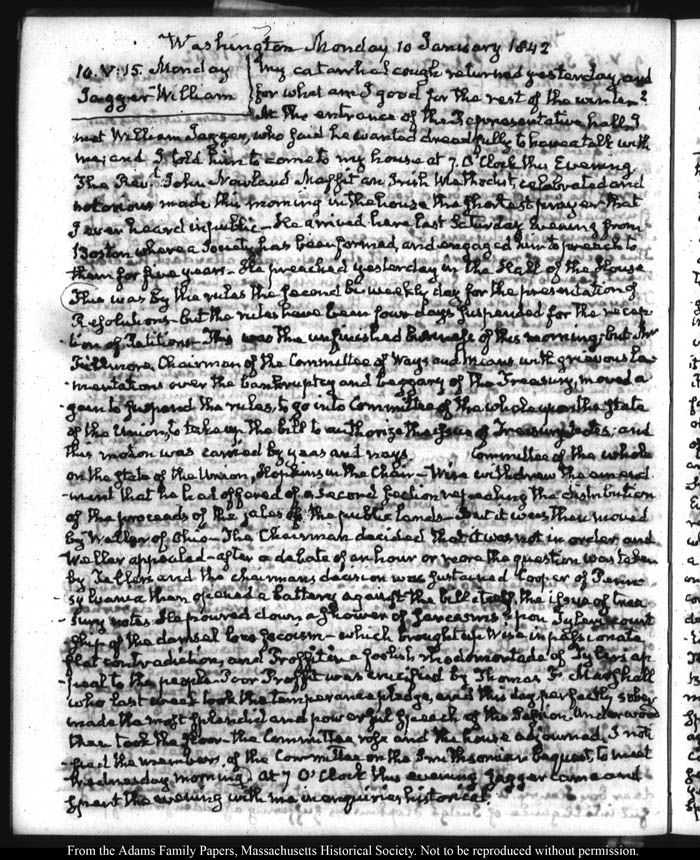 Washington Monday 10 January 1842
10. V:15. Monday
Jagger William
My catarrhal cough returned yesterday, and
for what am I good for the rest of the winter?
At the entrance of the Representative hall, I
met William Jagger, who said he wanted dreadfully to have a talk with
me; and I told him to come to my house at 7. O'Clock this Evening.
The Revd. John Newland Maffit an Irish Methodist, celebrated and
notorious made this morning in the house the shortest prayer that
I ever heard in public - He arrived here last Saturday Evening from
Boston where a Society has been formed, and engaged him to preach to
them for five years - He preached yesterday in the Hall of the House
This was by the rules the second bi-weekly day for the presentation of
Resolutions - but the rules have been four days suspended for the recep-
tion of Petitions - This was the unfinished business of this morning; but Mr
Fillmore, Chairman of the Committee of Ways and Means with grievous la-
mentations over the bankruptcy and beggary of the Treasury, moved a-
gain to suspend the rules, to go into Committee of the whole upon the state
of the Union, to take up the bill to authorize the issue of Treasury Notes; and
this motion was carried by yeas and nays Committee of the whole
on the state of the Union, Hopkins in the Chair - Wise withdrew the amend-
ment that he had offered of a second section repealing the distribution
of the proceeds of the sales of the public lands - but it was then moved
by Weller of Ohio - The Chairman decided that it was not in order and
Weller appealed - after a debate of an hour or more the question was taken
by Tellers and the chairman's decision was sustained Cooper of Penn-
sylvania then opened a battery against the bill itself, the issue of trea-
sury notes. He poured down a shower of sarcasms upon Tyler's court
ship of the damsel loco focoism - which brought up Wise in passionate
flat contradiction, and Proffit in a foolish rhodomontade of Tyler's ap-
peal to the people. Poor Proffit was crucified by Thomas F. Marshall
who last week took the temperance pledge, and this day perfectly sober
made the most splendid and powerful speech of the Session. Underwood
then took the floor - the Committee rose and the house adjourned. I noti-
fied the members, of the Committee on the Smithsonian bequest, to meet
Wednesday morning. At 7 O'Clock this evening Jagger came and
spent the evening with me in enquiries historical.
From the Adams Family Papers, Massachusetts Historical Society. Not to be reproduced without permission.